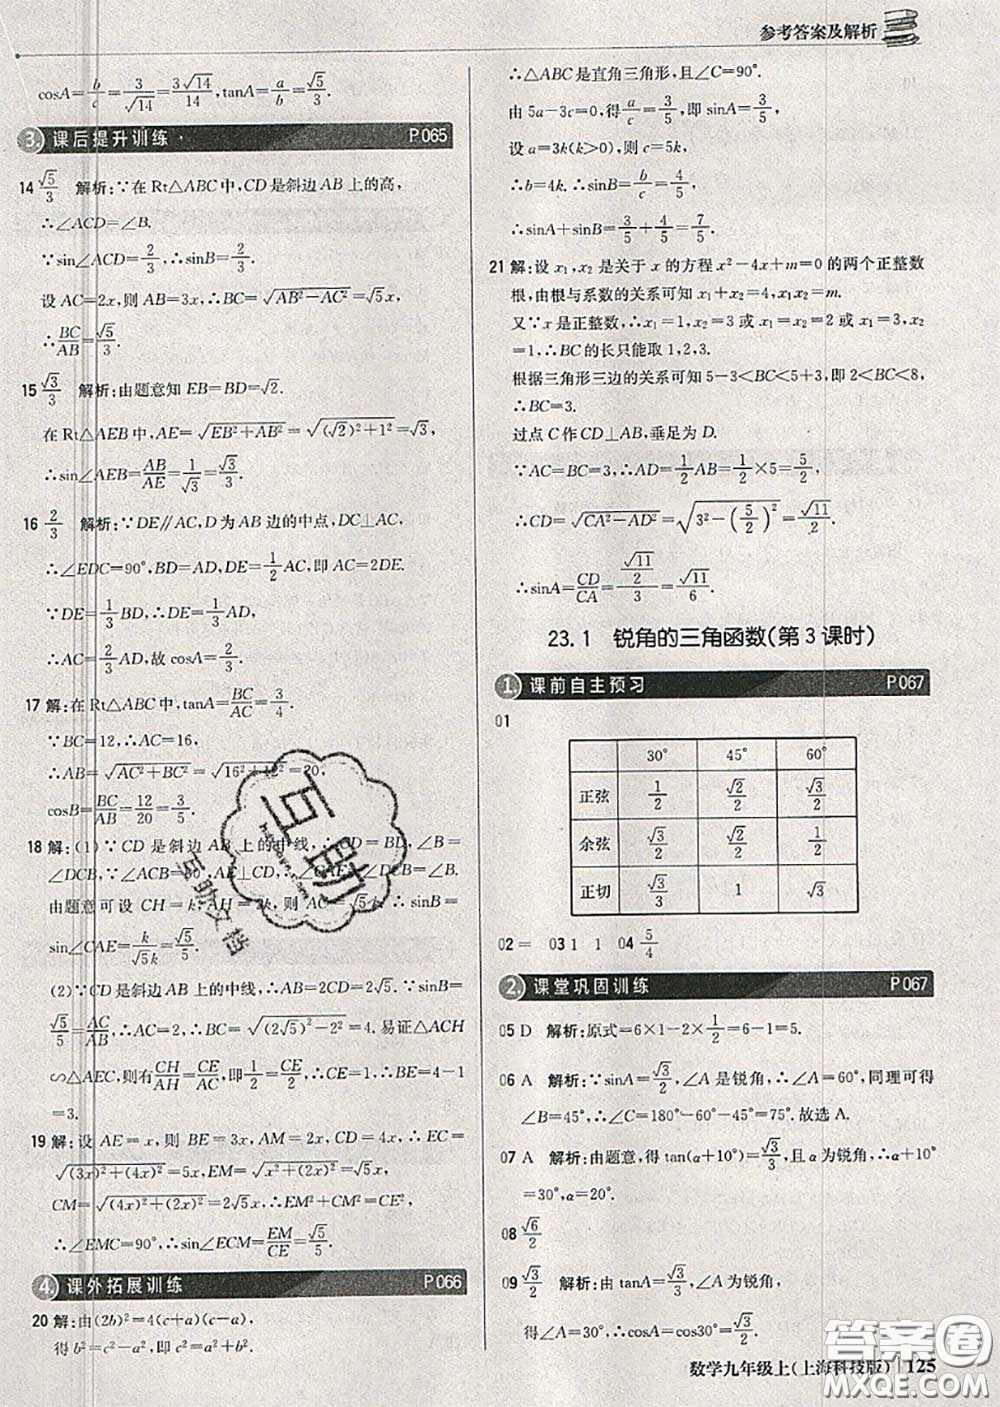 参考答案及解析
cosA=b/c=3/√14=3√14/14,tanA=a/b=√5/3.
3. 课后提升训练 P065
14 √5/3 解析:∵在 Rt△ABC中,CD是斜边AB上的高,
∴∠ACD=∠B.
∵sin∠ACD=2/3,∴sinB=2/3.
设 AC=2x,则 AB=3x,∴BC=√(AB²−AC²)=√5x,
∴BC/AB=√5/3.
15 √3/3 解析:由题意知 EB=BD=√2.
在 Rt△AEB中,AE=√(EB²+AB²)=√((√2)²+1²)=√3,
∴sin∠AEB=AB/AE=1/√3=√3/3.
16 2/3 解析:∵DE∥AC,D为AB边的中点,DC⊥AC,
∴∠EDC=90°,BD=AD,DE=1/2AC,即AC=2DE.
∵DE=1/3BD,∴DE=1/3AD,
∴AC=2/3AD,故 cosA=2/3.
17 解:在 Rt△ABC中,tanA=BC/AC=3/4.
∵BC=12,∴AC=16,
∴AB=√(AC²+BC²)=√(16²+12²)=20,
cosB=BC/AB=12/20=3/5.
18 解:(1)∵CD是斜边AB上的中线,∴CD=BD,∴∠B=
∠DCB,∵∠ACB=90°,AE⊥CD,∴∠CAE=∠DCB=∠B.
由题意可设 CH=k,AH=2k,则 AC=√5k,∴sinB=
sin∠CAE=k/√5k=√5/5.
(2)∵CD是斜边AB上的中线,∴AB=2CD=2√5.∵sinB=
√5/5=AC/AB,∴AC=2,∴BC=√((2√5)²−2²)=4.易证△ACH
∽△AEC,则有CH/AH=CE/AC,即1/2=CE/2,∴CE=1,∴BE=4−1
=3.
19 解:设 AE=x,则 BE=3x,AM=2x,CD=4x,∴EC=
√((3x)²+(4x)²)=5x,EM=√(x²+(2x)²)=√5x,
CM=√((4x)²+(2x)²)=2√5x,∴EM²+CM²=CE²,
∴∠EMC=90°,∴sin∠ECM=EM/CE=√5/5.
4. 课外拓展训练 P066
20 解:由(2b)²=4(c+a)(c−a),
得 b²=c²−a²,即 c²=a²+b².
∴△ABC是直角三角形,且∠C=90°.
由 5a−3c=0,得a/c=3/5,即 sinA=3/5.
设 a=3k(k>0),则 c=5k,
∴b=4k.∴sinB=b/c=4/5,
∴sinA+sinB=3/5+4/5=7/5.
21 解:设 x₁,x₂是关于x的方程x²−4x+m=0的两个正整数
根,由根与系数的关系可知 x₁+x₂=4,x₁x₂=m.
又∵x是正整数,∴x₁=1,x₂=3或x₁=x₂=2或x₁=3,x₂
=1,∴BC的长只能取1,2,3.
根据三角形三边的关系可知 5−3<BC<5+3,即 2<BC<8,
∴BC=3.
过点C作CD⊥AB,垂足为D.
∵AC=BC=3,∴AD=1/2AB=1/2×5=5/2,
∴CD=√(CA²−AD²)=√(3²−(5/2)²)=√11/2.
∴sinA=CD/CA=(√11/2)/3=√11/6.
23.1 锐角的三角函数(第3课时)
1. 课前自主预习 P067
01
30° 45° 60°
正弦 1/2 √2/2 √3/2
余弦 √3/2 √2/2 1/2
正切 √3/3 1 √3
02 = 03 1 1 04 5/4
2. 课堂巩固训练 P067
05 D 解析:原式=6×1−2×1/2=6−1=5.
06 A 解析:∵sinA=√3/2,∠A是锐角,∴∠A=60°,同理可得
∠B=45°,∴∠C=180°−60°−45°=75°.故选A.
07 A 解析:由题意,得 tan(α+10°)=√3/3,且α为锐角,∴α+10°
=30°,α=20°.
08 √6/2
09 √3/2 解析:由 tanA=√3/3,∠A为锐角,
得∠A=30°,∴cosA=cos30°=√3/2.
数学九年级上(上海科技版) 125
互助
互助文档
答案圈
MXQE.COM